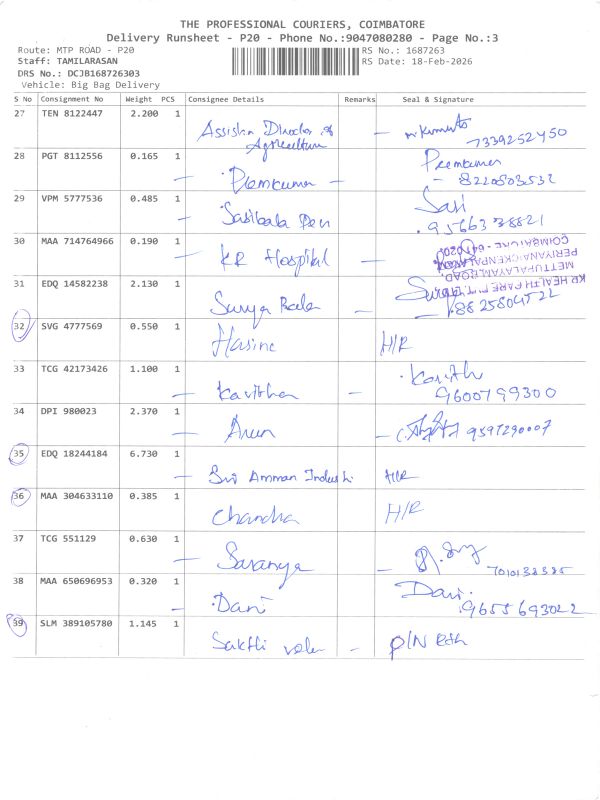 THE PROFESSIONAL COURIERS, COIMBATORE
Delivery Runsheet - P20 - Phone No.:9047080280 - Page No.:3
Route: MTP ROAD - P20 RS No.: 1687263
Staff: TAMILARASAN RS Date: 18-Feb-2026
DRS No.: DCJB168726303
Vehicle: Big Bag Delivery
S No Consignment No Weight PCS Consignee Details Remarks Seal & Signature
27 TEN 8122447 2.200 1 Assistn Director of
Agriculture 7339252450
28 PGT 8112556 0.165 1 Premkumar Premkumar
8220803532
29 VPM 5777536 0.485 1 Sasibala Devi Sasi
9566338821
30 MAA 714764966 0.190 1 KR Hospital
KR HEALTH CARE PVT. LTD.
METTUPALAYAM ROAD,
PERIYANAICKENPALAYAM
COIMBATORE - 641020
31 EDQ 14582238 2.130 1 Surya
8825804522
32 SVG 4777569 0.550 1 Hasine H/R
33 TCG 42173426 1.100 1 Kavitha Kavith
9600799300
34 DPI 980023 2.370 1 Arun 9597290007
35 EDQ 18244184 6.730 1 Sri Amman Industri H/R
36 MAA 304633110 0.385 1 Chandra H/R
37 TCG 551129 0.630 1 Saranya
7010138385
38 MAA 650696953 0.320 1 Dani Dani
9655693022
39 SLM 389105780 1.145 1 Sakthi vel P/N